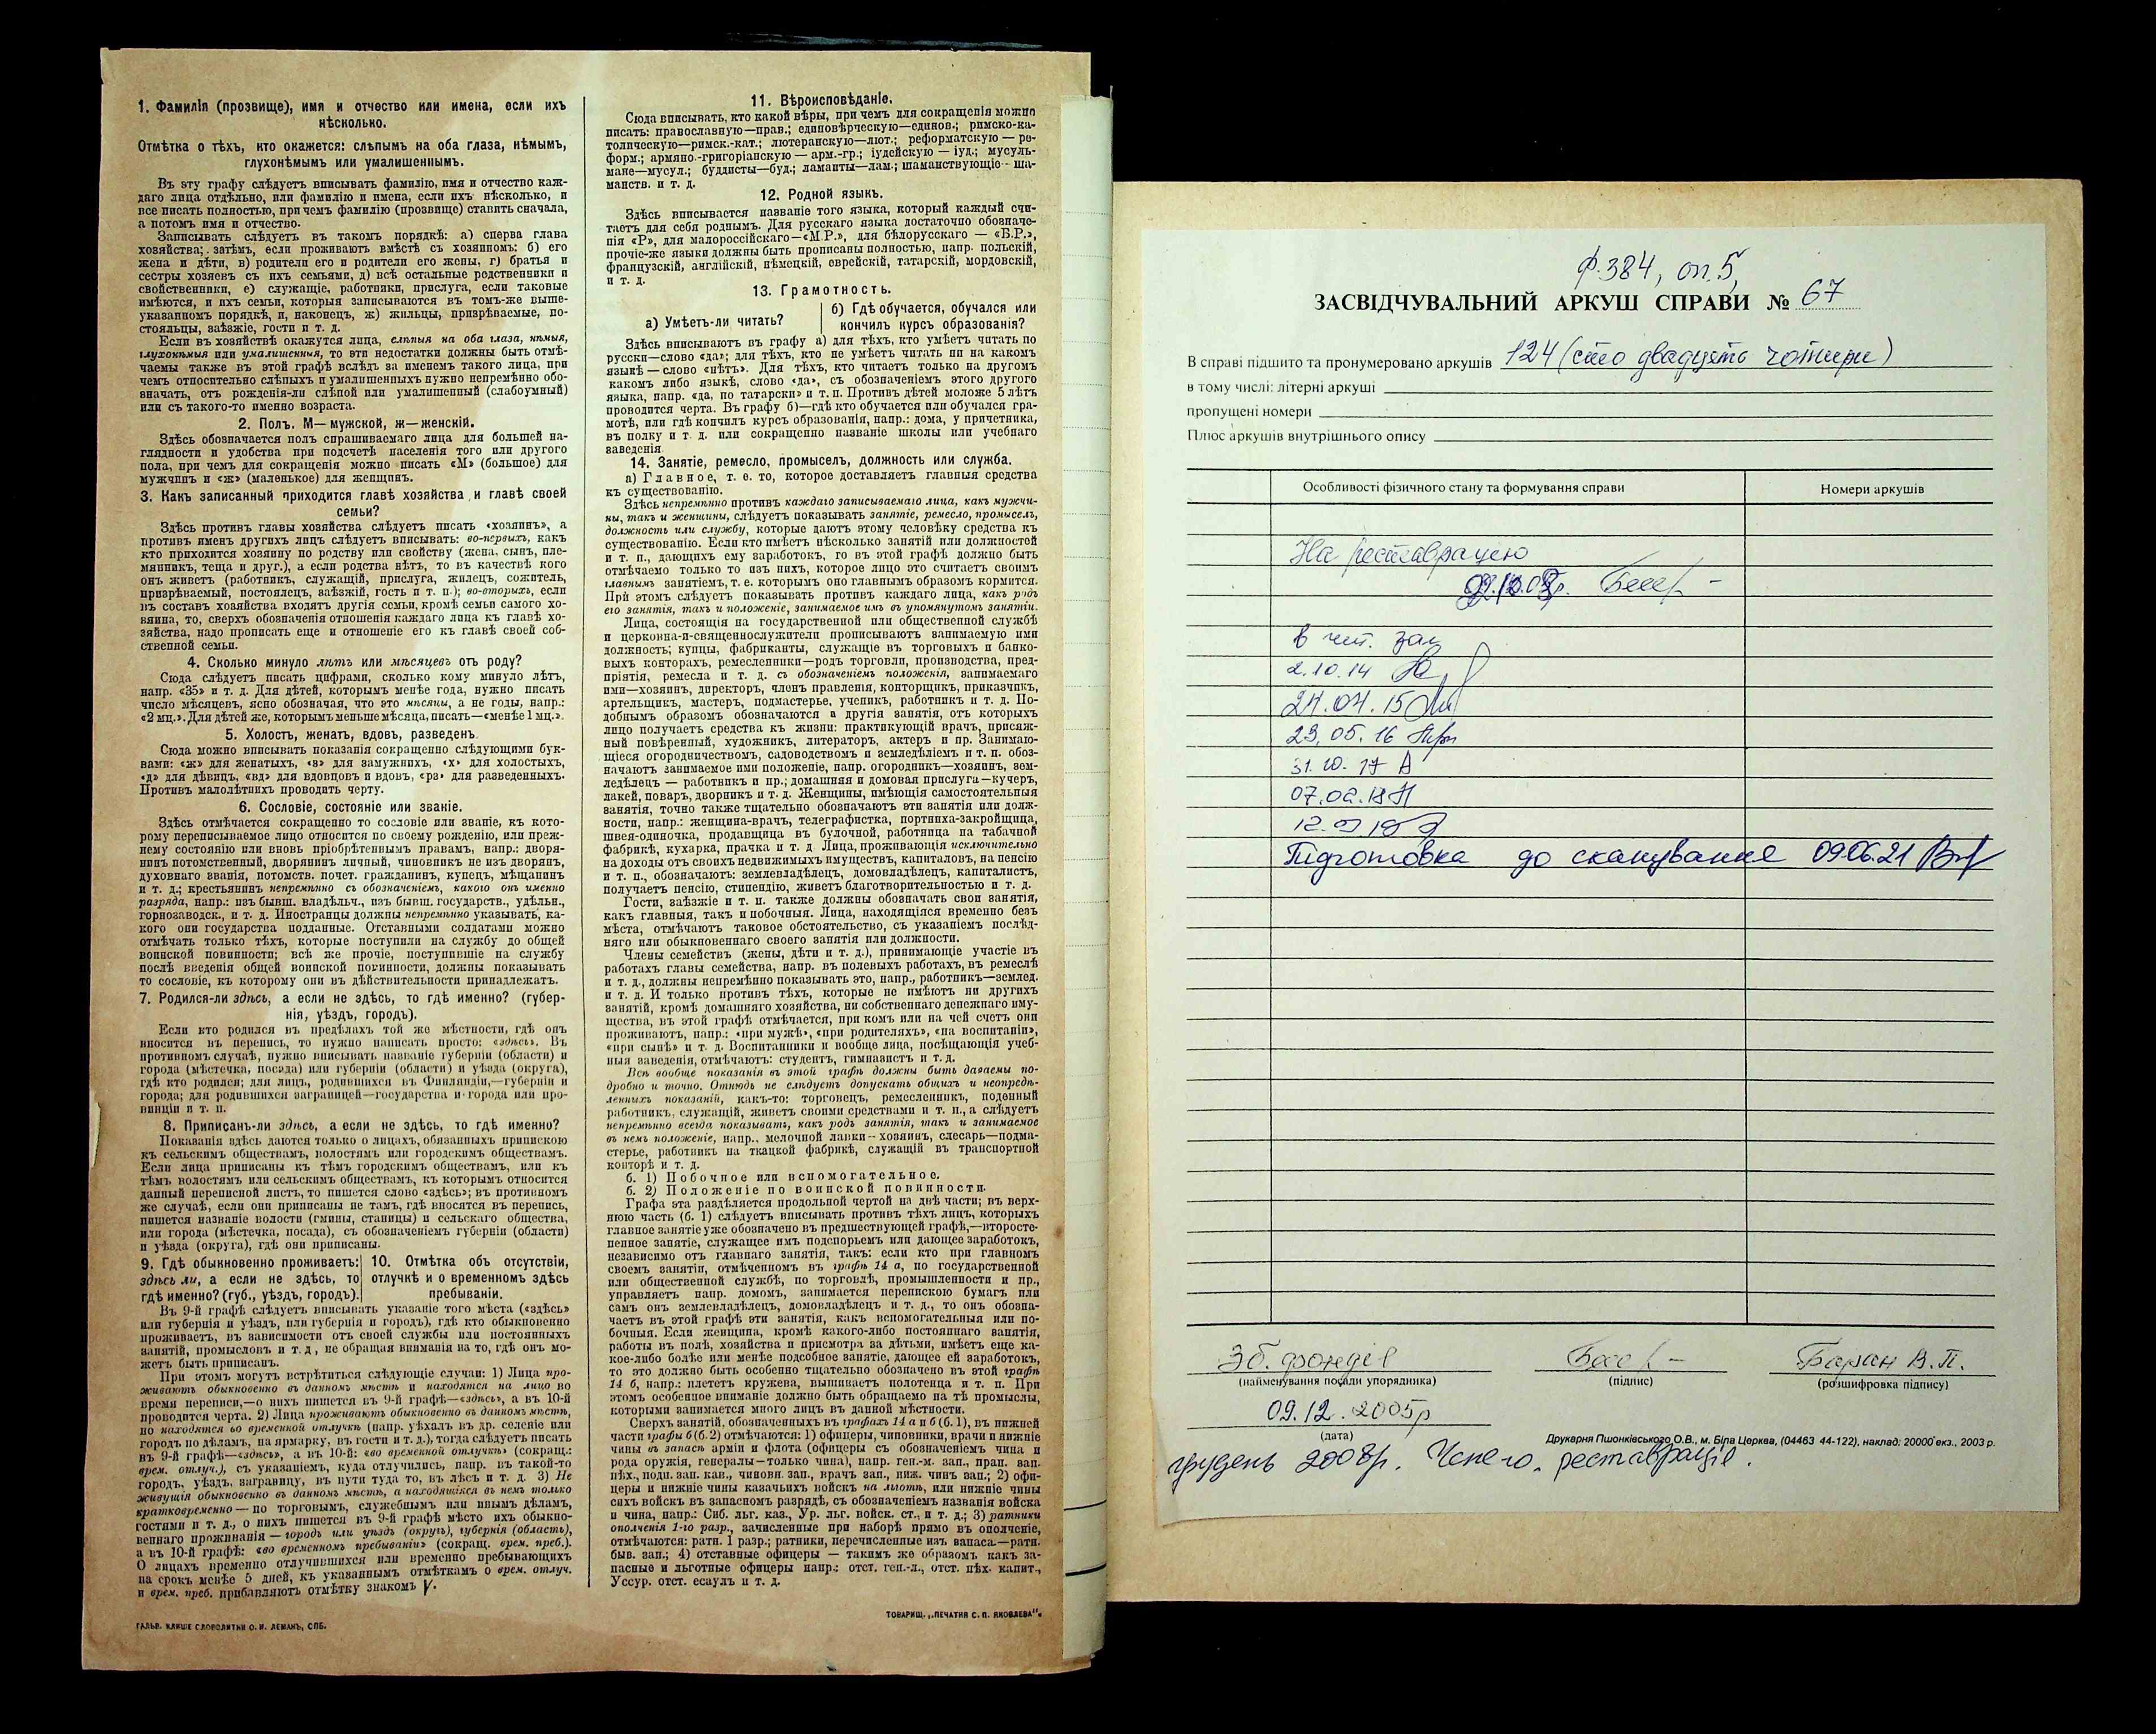 1. Фамилія (прозвище), имя и отчество или имена, если ихъ
нѣсколько.
Отмѣтка о тѣхъ, кто окажется: слѣпымъ на оба глаза, нѣмымъ,
глухонѣмымъ или умалишеннымъ.
Въ эту графу слѣдуетъ вписывать фамилію, имя и отчество каж-
даго лица отдѣльно, или фамилію и имена, если ихъ нѣсколько, и
все писать полностью, при чемъ фамилію (прозвище) ставить сначала,
а потомъ имя и отчество.
Записывать слѣдуетъ въ такомъ порядкѣ: а) сперва глава
хозяйства; затѣмъ, если проживаютъ вмѣстѣ съ хозяиномъ: б) его
жена и дѣти, в) родители его и родители его жены, г) братья и
сестры хозяевъ съ ихъ семьями, д) всѣ остальные родственники и
свойственники, е) служащіе, работники, прислуга, если таковые
имѣются, и ихъ семьи, которыя записываются въ томъ-же выше-
указанномъ порядкѣ, и, наконецъ, ж) жильцы, призрѣваемые, по-
стояльцы, заѣзжіе, гости и т. д.
Если въ хозяйствѣ окажутся лица, слѣпыя на оба глаза, нѣмыя,
глухонѣмыя или умалишенныя, то эти недостатки должны быть отмѣ-
чаемы также въ этой графѣ вслѣдъ за именемъ такого лица, при
чемъ относительно слѣпыхъ и умалишенныхъ нужно непремѣнно обо-
значать, отъ рожденія-ли слѣпой или умалишенный (слабоумный)
или съ такого-то именно возраста.
2. Полъ. М—мужской, ж—женскій.
Здѣсь обозначается полъ спрашиваемаго лица для большей на-
глядности и удобства при подсчетѣ населенія того или другого
пола, при чемъ для сокращенія можно писать «М» (большое) для
мужчинъ и «ж» (маленькое) для женщинъ.
3. Какъ записанный приходится главѣ хозяйства и главѣ своей
семьи?
Здѣсь противъ главы хозяйства слѣдуетъ писать «хозяинъ», а
противъ именъ другихъ лицъ слѣдуетъ вписывать: во-первыхъ, какъ
кто приходится хозяину по родству или свойству (жена, сынъ, пле-
мянникъ, теща и друг.), а если родства нѣтъ, то въ качествѣ кого
онъ живетъ (работникъ, служащій, прислуга, жилецъ, сожитель,
призрѣваемый, постоялецъ, заѣзжій, гость и т. п.); во-вторыхъ, если
въ составъ хозяйства входятъ другія семьи, кромѣ семьи самого хо-
зяина, то, сверхъ обозначенія отношенія каждаго лица къ главѣ хо-
зяйства, надо прописать еще и отношеніе его къ главѣ своей соб-
ственной семьи.
4. Сколько минуло лѣтъ или мѣсяцевъ отъ роду?
Сюда слѣдуетъ писать цифрами, сколько кому минуло лѣтъ,
напр. «35» и т. д. Для дѣтей, которымъ менѣе года, нужно писать
число мѣсяцевъ, ясно обозначая, что это мѣсяцы, а не годы, напр.:
«2 мц.». Для дѣтей же, которымъ меньше мѣсяца, писать—«менѣе 1 мц.».
5. Холостъ, женатъ, вдовъ, разведенъ
Сюда можно вписывать показанія сокращенно слѣдующими бук-
вами: «ж» для женатыхъ, «з» для замужнихъ, «х» для холостыхъ,
«д» для дѣвицъ, «вд» для вдовцовъ и вдовъ, «рз» для разведенныхъ.
Противъ малолѣтнихъ проводить черту.
6. Сословіе, состояніе или званіе.
Здѣсь отмѣчается сокращенно то сословіе или званіе, къ кото-
рому переписываемое лицо относится по своему рожденію, или преж-
нему состоянію или вновь пріобрѣтеннымъ правамъ, напр.: дворя-
нинъ потомственный, дворянинъ личный, чиновникъ не изъ дворянъ,
духовнаго званія, потомств. почет. гражданинъ, купецъ, мѣщанинъ
и т. д.; крестьянинъ непремѣнно съ обозначеніемъ, какого онъ именно
разряда, напр.: изъ бывш. владѣльч., изъ бывш. государств., удѣльн.,
горнозаводск., и т. д. Иностранцы должны непремѣнно указывать, ка-
кого они государства подданные. Отставными солдатами можно
отмѣчать только тѣхъ, которые поступили на службу до общей
воинской повинности; всѣ же прочіе, поступившіе на службу
послѣ введенія общей воинской повинности, должны показывать
то сословіе, къ которому они въ дѣйствительности принадлежатъ.
7. Родился-ли здѣсь, а если не здѣсь, то гдѣ именно? (губер-
нія, уѣздъ, городъ).
Если кто родился въ предѣлахъ той же мѣстности, гдѣ онъ
вносится въ перепись, то нужно написать просто: «здѣсь». Въ
противномъ случаѣ, нужно вписывать названіе губерніи (области) и
города (мѣстечка, посада) или губерніи (области) и уѣзда (округа),
гдѣ кто родился; для лицъ, родившихся въ Финляндіи,—губерніи и
города; для родившихся заграницей—государства и города или про-
винціи и т. п.
8. Приписанъ-ли здѣсь, а если не здѣсь, то гдѣ именно?
Показанія здѣсь даются только о лицахъ, обязанныхъ припискою
къ сельскимъ обществамъ, волостямъ или городскимъ обществамъ.
Если лица приписаны къ тѣмъ городскимъ обществамъ, или къ
тѣмъ волостямъ или сельскимъ обществамъ, къ которымъ относится
данный переписной листъ, то пишется слово «здѣсь»; въ противномъ
же случаѣ, если они приписаны не тамъ, гдѣ вносятся въ перепись,
пишется названіе волости (гмины, станицы) и сельскаго общества,
или города (мѣстечка, посада), съ обозначеніемъ губерніи (области)
и уѣзда (округа), гдѣ они приписаны.
9. Гдѣ обыкновенно проживаетъ:
здѣсь ли, а если не здѣсь, то
гдѣ именно? (губ., уѣздъ, городъ).
10. Отмѣтка объ отсутствіи,
отлучкѣ и о временномъ здѣсь
пребываніи.
Въ 9-й графѣ слѣдуетъ вписывать указаніе того мѣста («здѣсь»
или губернія и уѣздъ, или губернія и городъ), гдѣ кто обыкновенно
проживаетъ, въ зависимости отъ своей службы или постоянныхъ
занятій, промысловъ и т. д., не обращая вниманія на то, гдѣ онъ мо-
жетъ быть приписанъ.
При этомъ могутъ встрѣтиться слѣдующіе случаи: 1) Лица про-
живаютъ обыкновенно въ данномъ мѣстѣ и находятся на лицо во
время переписи,—о нихъ пишется въ 9-й графѣ—«здѣсь», а въ 10-й
проводится черта. 2) Лица проживаютъ обыкновенно въ данномъ мѣстѣ,
но находятся во временной отлучкѣ (напр. уѣхалъ въ др. селеніе или
городъ по дѣламъ, на ярмарку, въ гости и т. д.), тогда слѣдуетъ писать
въ 9-й графѣ—«здѣсь», а въ 10-й: «во временной отлучкѣ» (сокращ.:
врем. отлуч.), съ указаніемъ, куда отлучились, напр. въ такой-то
городъ, уѣздъ, заграницу, въ пути туда то, въ лѣсъ и т. д. 3) Не
живущія обыкновенно въ данномъ мѣстѣ, а находящіяся въ немъ только
кратковременно — по торговымъ, служебнымъ или инымъ дѣламъ,
гостями и т. д., о нихъ пишется въ 9-й графѣ мѣсто ихъ обыкно-
веннаго проживанія — городъ или уѣздъ (округъ), губернія (область),
а въ 10-й графѣ: «во временномъ пребываніи» (сокращ. врем. преб.).
О лицахъ временно отлучившихся или временно пребывающихъ
на срокъ менѣе 5 дней, къ указаннымъ отмѣткамъ о врем. отлуч.
и врем. преб. прибавляютъ отмѣтку знакомъ V.
ГАЛЬВ. КЛИШЕ СЛОВОЛИТНИ О. И. ЛЕМАНЪ, СПБ.
11. Вѣроисповѣданіе.
Сюда вписывать, кто какой вѣры, при чемъ для сокращенія можно
писать: православную—прав.; единовѣрческую—единов.; римско-ка-
толическую—римск.-кат.; лютеранскую—лют.; реформатскую — ре-
форм.; армяно.-григоріанскую — арм.-гр.; іудейскую — іуд.; мусуль-
мане—мусул.; буддисты—буд.; ламаиты—лам.; шаманствующіе—ша-
манств. и т. д.
12. Родной языкъ.
Здѣсь вписывается названіе того языка, который каждый счи-
таетъ для себя роднымъ. Для русскаго языка достаточно обозначе-
нія «Р», для малороссійскаго—«М.Р.», для бѣлорусскаго — «Б.Р.»,
прочіе-же языки должны быть прописаны полностью, напр. польскій,
французскій, англійскій, нѣмецкій, еврейскій, татарскій, мордовскій,
и т. д.
13. Грамотность.
а) Умѣетъ-ли читать?
б) Гдѣ обучается, обучался или
кончилъ курсъ образованія?
Здѣсь вписываютъ въ графу а) для тѣхъ, кто умѣетъ читать по
русски—слово «да»; для тѣхъ, кто не умѣетъ читать ни на какомъ
языкѣ — слово «нѣтъ». Для тѣхъ, кто читаетъ только на другомъ
какомъ либо языкѣ, слово «да», съ обозначеніемъ этого другого
языка, напр. «да, по татарски» и т. п. Противъ дѣтей моложе 5 лѣтъ
проводится черта. Въ графу б)—гдѣ кто обучается или обучался гра-
мотѣ, или гдѣ кончилъ курсъ образованія, напр.: дома, у причетника,
въ полку и т. д. или сокращенно названіе школы или учебнаго
заведенія
14. Занятіе, ремесло, промыселъ, должность или служба.
а) Главное, т. е. то, которое доставляетъ главныя средства
къ существованію.
Здѣсь непремѣнно противъ каждаго записываемаго лица, какъ мужчи-
ны, такъ и женщины, слѣдуетъ показывать занятіе, ремесло, промыселъ,
должность или службу, которые даютъ этому человѣку средства къ
существованію. Если кто имѣетъ нѣсколько занятій или должностей
и т. п., дающихъ ему заработокъ, то въ этой графѣ должно быть
отмѣчаемо только то изъ нихъ, которое лицо это считаетъ своимъ
главнымъ занятіемъ, т. е. которымъ оно главнымъ образомъ кормится.
При этомъ слѣдуетъ показывать противъ каждаго лица, какъ родъ
его занятія, такъ и положеніе, занимаемое имъ въ упомянутомъ занятіи.
Лица, состоящія на государственной или общественной службѣ
и церковна-и-священнослужители прописываютъ занимаемую ими
должность; купцы, фабриканты, служащіе въ торговыхъ и банко-
выхъ конторахъ, ремесленники—родъ торговли, производства, пред-
пріятія, ремесла и т. д. съ обозначеніемъ положенія, занимаемаго
ими—хозяинъ, директоръ, членъ правленія, конторщикъ, приказчикъ,
артельщикъ, мастеръ, подмастерье, ученикъ, работникъ и т. д. По-
добнымъ образомъ обозначаются а другія занятія, отъ которыхъ
лицо получаетъ средства къ жизни: практикующій врачъ, присяж-
ный повѣренный, художникъ, литераторъ, актеръ и пр. Занимаю-
щіеся огородничествомъ, садоводствомъ и земледѣліемъ и т. п. обоз-
начаютъ занимаемое ими положеніе, напр. огородникъ—хозяинъ, зем-
ледѣлецъ — работникъ и пр.; домашняя и домовая прислуга—кучеръ,
лакей, поваръ, дворникъ и т. д. Женщины, имѣющія самостоятельныя
занятія, точно также тщательно обозначаютъ эти занятія или долж-
ности, напр.: женщина-врачъ, телеграфистка, портниха-закройщица,
швея-одиночка, продавщица въ булочной, работница на табачной
фабрикѣ, кухарка, прачка и т. д Лица, проживающія исключительно
на доходы отъ своихъ недвижимыхъ имуществъ, капиталовъ, на пенсію
и т. п., обозначаютъ: землевладѣлецъ, домовладѣлецъ, капиталистъ,
получаетъ пенсію, стипендію, живетъ благотворительностью и т. д.
Гости, заѣзжіе и т. п. также должны обозначать свои занятія,
какъ главныя, такъ и побочныя. Лица, находящіяся временно безъ
мѣста, отмѣчаютъ таковое обстоятельство, съ указаніемъ послѣд-
няго или обыкновеннаго своего занятія или должности.
Члены семействъ (жены, дѣти и т. д.), принимающіе участіе въ
работахъ главы семейства, напр. въ полевыхъ работахъ, въ ремеслѣ
и т. д., должны непремѣнно показывать это, напр., работникъ—землед.
и т. д. И только противъ тѣхъ, которые не имѣютъ ни другихъ
занятій, кромѣ домашняго хозяйства, ни собственнаго денежнаго иму-
щества, въ этой графѣ отмѣчается, при комъ или на чей счетъ они
проживаютъ, напр.: «при мужѣ», «при родителяхъ», «на воспитаніи»,
«при сынѣ» и т. д. Воспитанники и вообще лица, посѣщающія учеб-
ныя заведенія, отмѣчаютъ: студентъ, гимназистъ и т. д.
Всѣ вообще показанія въ этой графѣ должны быть даваемы по-
дробно и точно. Отнюдь не слѣдуетъ допускать общихъ и неопредѣ-
ленныхъ показаній, какъ-то: торговецъ, ремесленникъ, поденный
работникъ, служащій, живетъ своими средствами и т. п., а слѣдуетъ
непремѣнно всегда показывать, какъ родъ занятія, такъ и занимаемое
въ немъ положеніе, напр., мелочной лавки—хозяинъ, слесарь—подма-
стерье, работникъ на ткацкой фабрикѣ, служащій въ транспортной
конторѣ и т. д.
б. 1) Побочное или вспомогательное.
б. 2) Положеніе по воинской повинности.
Графа эта раздѣляется продольной чертой на двѣ части; въ верх-
нюю часть (б. 1) слѣдуетъ вписывать противъ тѣхъ лицъ, которыхъ
главное занятіе уже обозначено въ предшествующей графѣ,—второсте-
пенное занятіе, служащее имъ подспорьемъ или дающее заработокъ,
независимо отъ главнаго занятія, такъ: если кто при главномъ
своемъ занятіи, отмѣченномъ въ графѣ 14 а, по государственной
или общественной службѣ, по торговлѣ, промышленности и пр.,
управляетъ напр. домомъ, занимается перепискою бумагъ или
самъ онъ землевладѣлецъ, домовладѣлецъ и т. д., то онъ обозна-
чаетъ въ этой графѣ эти занятія, какъ вспомогательныя или по-
бочныя. Если женщина, кромѣ какого-либо постояннаго занятія,
работы въ полѣ, хозяйства и присмотра за дѣтьми, имѣетъ еще ка-
кое-либо болѣе или менѣе подсобное занятіе, дающее ей заработокъ,
то это должно быть особенно тщательно обозначено въ этой графѣ
14 б, напр.: плететъ кружева, вышиваетъ полотенца и т. п. При
этомъ особенное вниманіе должно быть обращаемо на тѣ промыслы,
которыми занимается много лицъ въ данной мѣстности.
Сверхъ занятій, обозначенныхъ въ графахъ 14 а и б (б. 1), въ нижней
части графы б (б. 2) отмѣчаются: 1) офицеры, чиновники, врачи и нижніе
чины въ запасѣ арміи и флота (офицеры съ обозначеніемъ чина и
рода оружія, генералы—только чина), напр. ген.-м. зап., прап. зап.
пѣх., подп. зап. кав., чиновн. зап., врачъ зап., ниж. чинъ зап.; 2) офи-
церы и нижніе чины казачьихъ войскъ на льготѣ, или нижніе чины
сихъ войскъ въ запасномъ разрядѣ, съ обозначеніемъ названія войска
и чина, напр.: Сиб. льг. каз., Ур. льг. войск. ст., и т. д.; 3) ратники
ополченія 1-го разр., зачисленные при наборѣ прямо въ ополченіе,
отмѣчаются: ратн. 1 разр.; ратники, перечисленные изъ запаса.—ратн.
быв. зап.; 4) отставные офицеры — такимъ же образомъ какъ за-
пасные и льготные офицеры напр.: отст. ген.-л., отст. пѣх. капит.,
Уссур. отст. есаулъ и т. д.
ТОВАРИЩ. „ПЕЧАТНЯ С. П. ЯКОВЛЕВА"
ф.384, оп.5,
ЗАСВІДЧУВАЛЬНИЙ АРКУШ СПРАВИ № 67
В справі підшито та пронумеровано аркушів 124 (сто двадцять чотири)
в тому числі: літерні аркуші
пропущені номери
Плюс аркушів внутрішнього опису
Особливості фізичного стану та формування справи
Номери аркушів
На реставрацію
в чит. зал
2.10.14
24.04.15
23.05.16
31.10.17
07.02.18
Підготовка до сканування 09.06.21
Зб. фондів
Баран В. П.
(найменування посади упорядника)
(підпис)
(розшифровка підпису)
09.12.2005р
(дата)
Друкарня Пшонківського О.В., м. Біла Церква, (04463 44-122), наклад: 20000 екз., 2003 р.
грудень 2008р. реставрація.